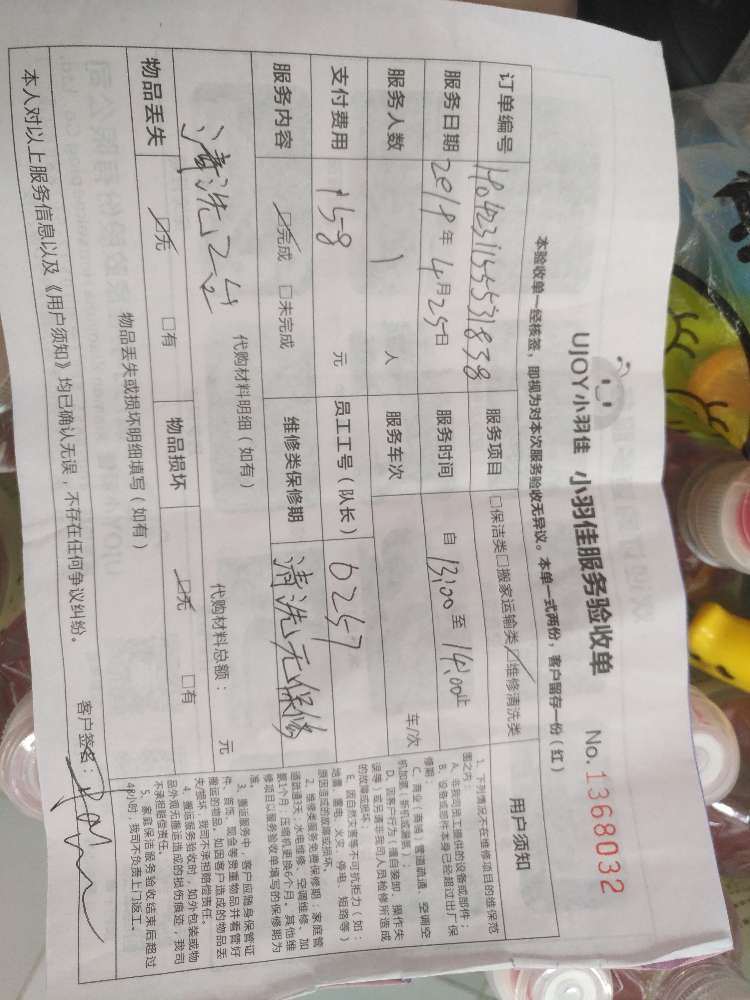 UJOY小羽佳 小羽佳服务验收单 No.1368032
本验收单一经核签，即视为对本次服务验收无异议。本单一式两份，客户留存一份（红）
订单编号 服务项目 □保洁类□搬家运输类☑维修清洗类
服务日期 2019年4月25日 服务时间 自 13:00 至 14:00止
服务人数 1 人 服务车次 车/次
支付费用 158 元 员工工号（队长） 0257
服务内容 ☑完成 □未完成 维修类保修期 清洗无保修
代购材料明细（如有） 代购材料总额： 元
清洗
物品丢失 ☑无 □有 物品损坏 ☑无 □有
物品丢失或损坏明细填写（如有）
本人对以上服务信息以及《用户须知》均已确认无误，不存在任何争议纠纷。
客户签名：
用户须知
1、下列情况不在维修项目的维保范
围之内：
A、非我司施工提供的设备或部件；
B、设备或部件本身已经超过出厂保
修期；
C、商业（商铺）管道疏通、空调空
机加氟（拆机或漏氟）；
D、因客户行为（擅自装卸、操作失
误等）或另请非我司人员检修所造成
的故障或损坏。
E、因自然灾害等不可抗拒力（如：
地震、雷电、火灾、停电、短路等）
原因造成的故障或损坏。
2、维修类服务免费保修期：家庭管
道疏通3天；水电维修、空调维修、加
氨1个月；压缩机更换6个月。其他维
修项目以服务验收单填写的保修期为
准。
3、搬运服务中，客户应随身保管证
件、首饰、现金等贵重物品并看管好
搬运的物品。如因客户造成的物品丢
失/损坏，我司不承担赔偿责任。
4、搬运服务验收时，如外包装或物
品外观无搬运造成的损伤痕迹，我司
不承担赔偿责任。
5、家庭保洁服务验收结束后超过
48小时，我司不负责上门返工。